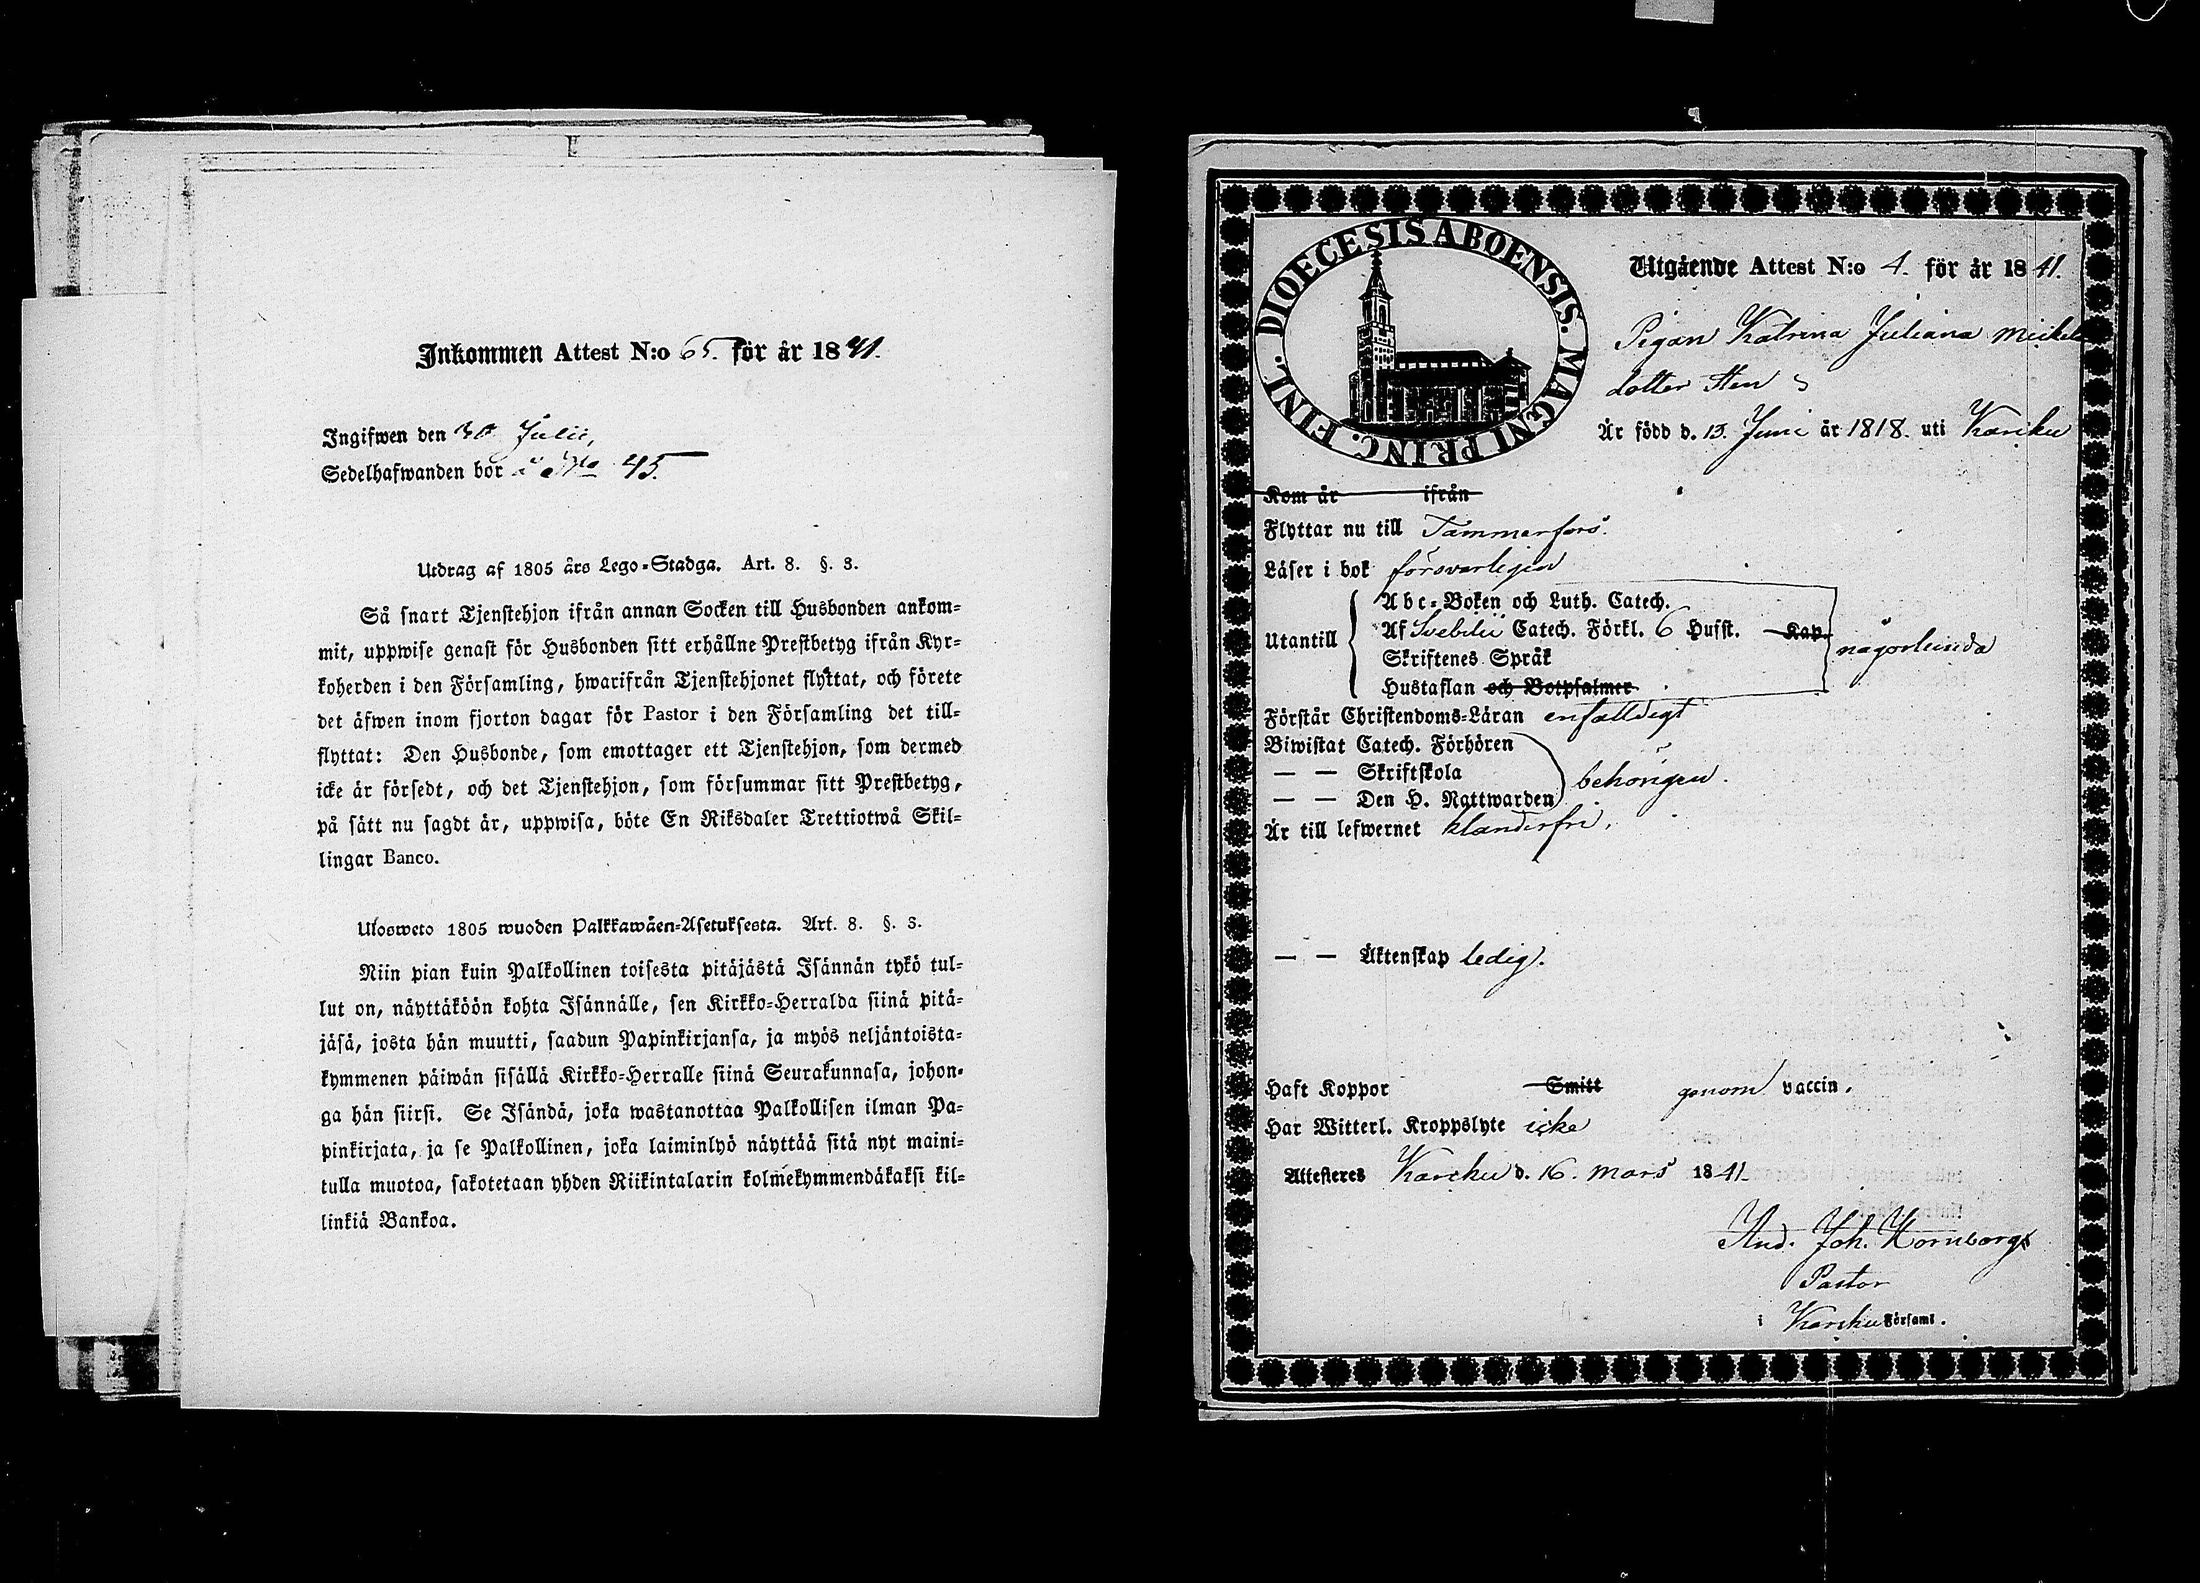 Inkommen Attest N:o 65. för år 1841.
Ingifwen den 30 Julii,
Sedelhafwanden bor å No 45.
Utdrag af 1805 års Lego-Stadga. Art. 8. §. 3.
Så snart Tjenstehjon ifrån annan Socken till Husbonden ankom-
mit, uppwise genast för Husbonden sitt erhållne Prestbetyg ifrån Kyr-
koherden i den Församling, hwarifrån Tjenstehjonet flyttat, och förete
det äfwen inom fjorton dagar för Pastor i den Församling det till-
flyttat: Den Husbonde, som emottager ett Tjenstehjon, som dermed
icke är försedt, och det Tjenstehjon, som försummar sitt Prestbetyg,
på sätt nu sagdt är, uppwisa, böte En Riksdaler Trettiotwå Skil-
lingar Banco.
Ulosweto 1805 wuoden Palkkawäen-Asetuksesta. Art. 8. §. 3.
Niin pian kuin Palkollinen toisesta pitäjästä Isännän tykö tul-
lut on, näyttäköön kohta Isännälle, sen Kirkko-Herralda siinä pitä-
jäsä, josta hän muutti, saadun Papinkirjansa, ja myös neljäntoista-
kymmenen päiwän sisällä Kirkko-Herralle siinä Seurakunnasa, johon-
ga hän siirsi. Se Isändä, joka wastanottaa Palkollisen ilman Pa-
pinkirjata, ja se Palkollinen, joka laiminlyö näyttää sitä nyt maini-
tulla muotoa, sakotetaan yhden Riikintalarin kolmekymmendäkaksi kil-
linkiä Bankoa.
DIOECESIS ABOENSIS. MAGNI PRINC. FINL.
Utgående Attest N:o 4. för år 1841.
Pigan Katrina Juliana Mickels
dotter Sten
Är född d. 13. Juni år 1818. uti Karcku
Kom år ifrån
Flyttar nu till Tammerfors.
Läser i bok försvarligen
Utantill
Abc-Boken och Luth. Catech.
Af Svebilii Catech. Förkl. 6 Hufst. Kap.
Skriftenes Språk
Hustaflan och Botpsalmer
någorlunda
Förstår Christendoms-Läran enfalldigt
Biwistat Catech. Förhören
— — Skriftskola
— — Den H. Nattwarden
behörigen.
Är till lefwernet klanderfri.
— — Äktenskap ledig.
Haft Koppor Smitt genom vaccin.
Har Witterl. Kroppslyte icke
Attesteres Karcku d. 16. Mars 1841.
And. Joh. Hornborgs
Pastor
i Karcku Församl.